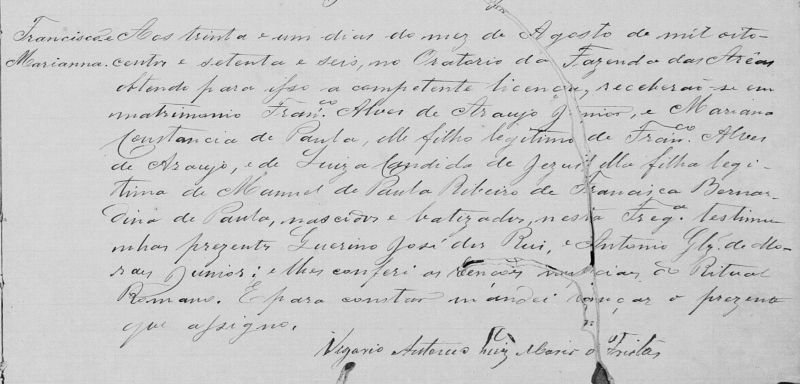 Francisco e Aos trinta e um dias do mez de Agosto de mil oito-
Marianna. centos e setenta e seis, no Oratorio da Fazenda das Arêas
obtendo para isso a competente licença, receberaõ-se em
matrimonio Fran.co Alves de Araujo Junior, e Mariana
Constancia de Paula, elle filho legitimo de Fran.co Alves
de Araujo, e de Luiza Candida de Jezus ella filha legi-
tima de Manuel de Paula Ribeiro de Francisca Bernar-
dina de Paula, nascidos e batizados, nesta Freg.a testimu
nhas prezentes Guerino José dos Reis, e Antonio Glz. de Mo-
raes Junior; e lhes conferi as bençoẽs nupcias do Ritual
Romano. E para constar mandei lançar o prezente
que assigno.
Vigario Antonio Luiz Maria Freitas